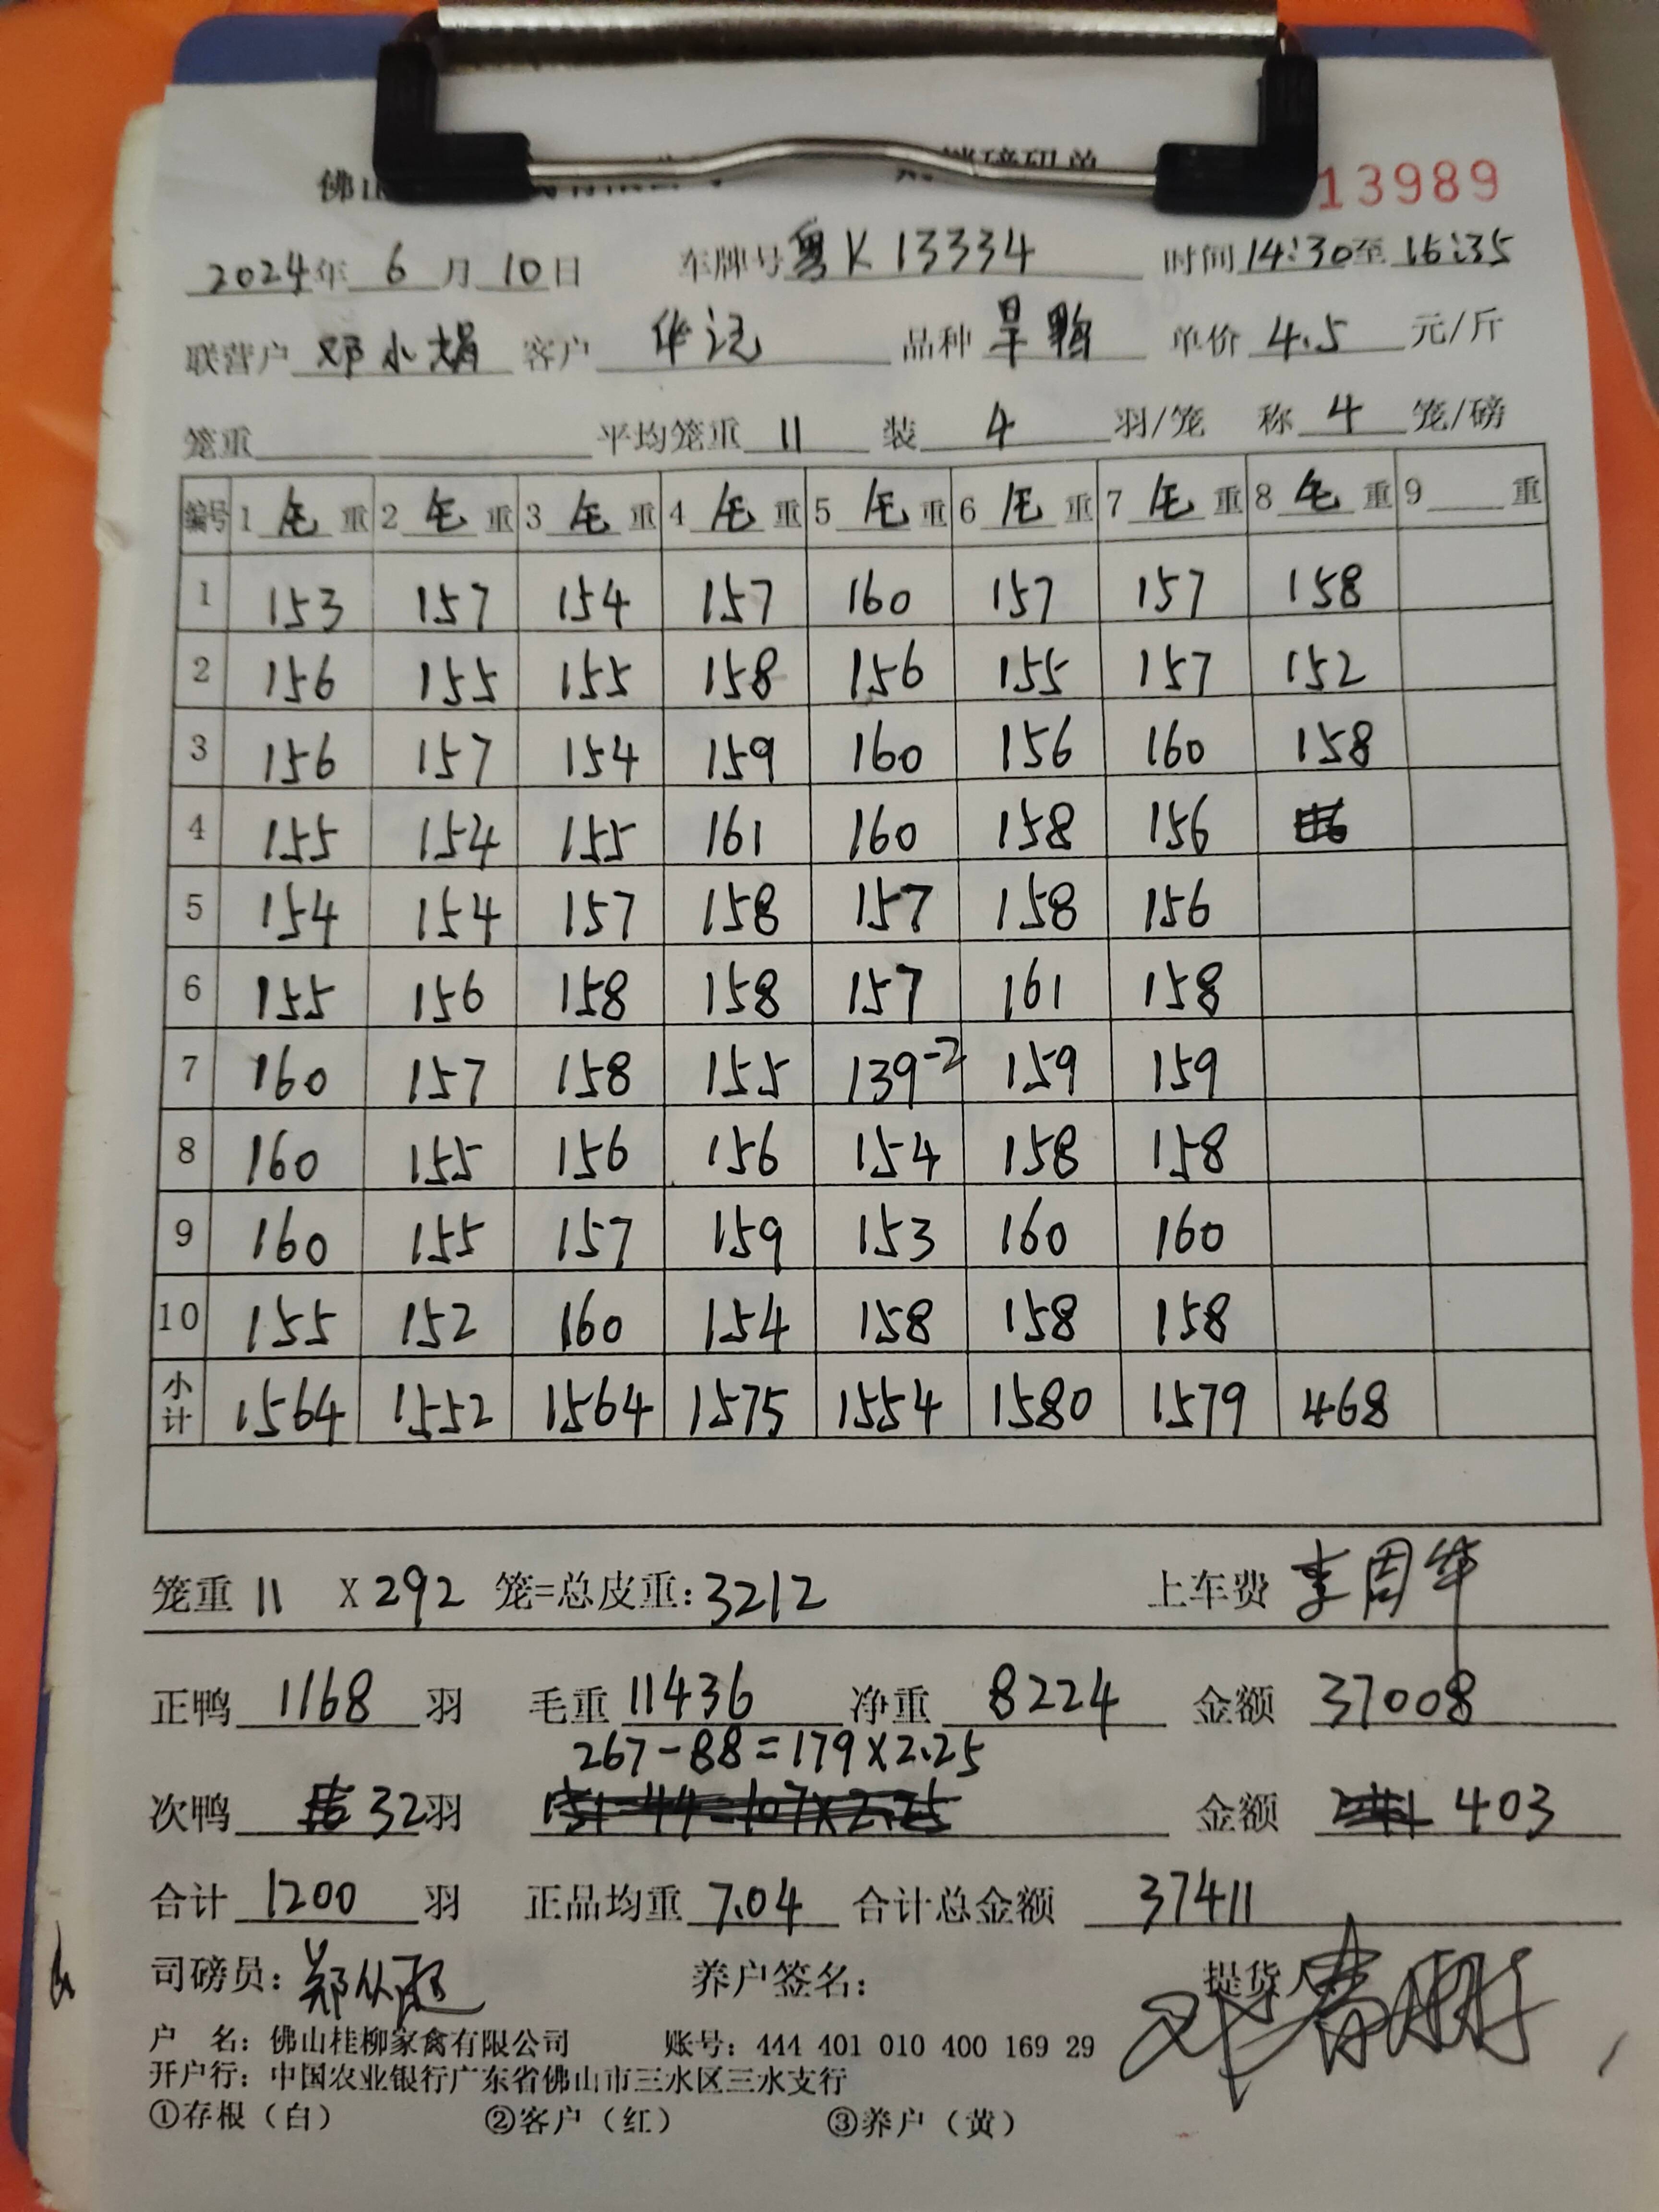 佛山
13989
2024年 6月 10日 车牌号 粤K13334 时间 14:30至 16:35
联营户 邓小娟 客户 华记 品种 旱鸭 单价 4.5 元/斤
笼重 平均笼重 11 装 4 羽/笼 称 4 笼/磅
编号 1 毛 重 2 毛 重 3 毛 重 4 毛 重 5 毛 重 6 毛 重 7 毛 重 8 毛 重 9 重
1 153 157 154 157 160 157 157 158
2 156 155 155 158 156 155 157 152
3 156 157 154 159 160 156 160 158
4 155 154 155 161 160 158 156
5 154 154 157 158 157 158 156
6 155 156 158 158 157 161 158
7 160 157 158 155 139-2 159 159
8 160 155 156 156 154 158 158
9 160 155 157 159 153 160 160
10 155 152 160 154 158 158 158
小计 1564 1552 1564 1575 1554 1580 1579 468
笼重 11 X 292 笼=总皮重: 3212 上车费 李周华
正鸭 1168 羽 毛重 11436 净重 8224 金额 37008
267-88=179×2.25
次鸭 32羽 151-44=107×2.25 金额 403
合计 1200 羽 正品均重 7.04 合计总金额 37411
司磅员: 养户签名: 提货人
户 名: 佛山桂柳家禽有限公司 账号: 444 401 010 400 169 29
开户行: 中国农业银行广东省佛山市三水区三水支行
①存根（白） ②客户（红） ③养户（黄）